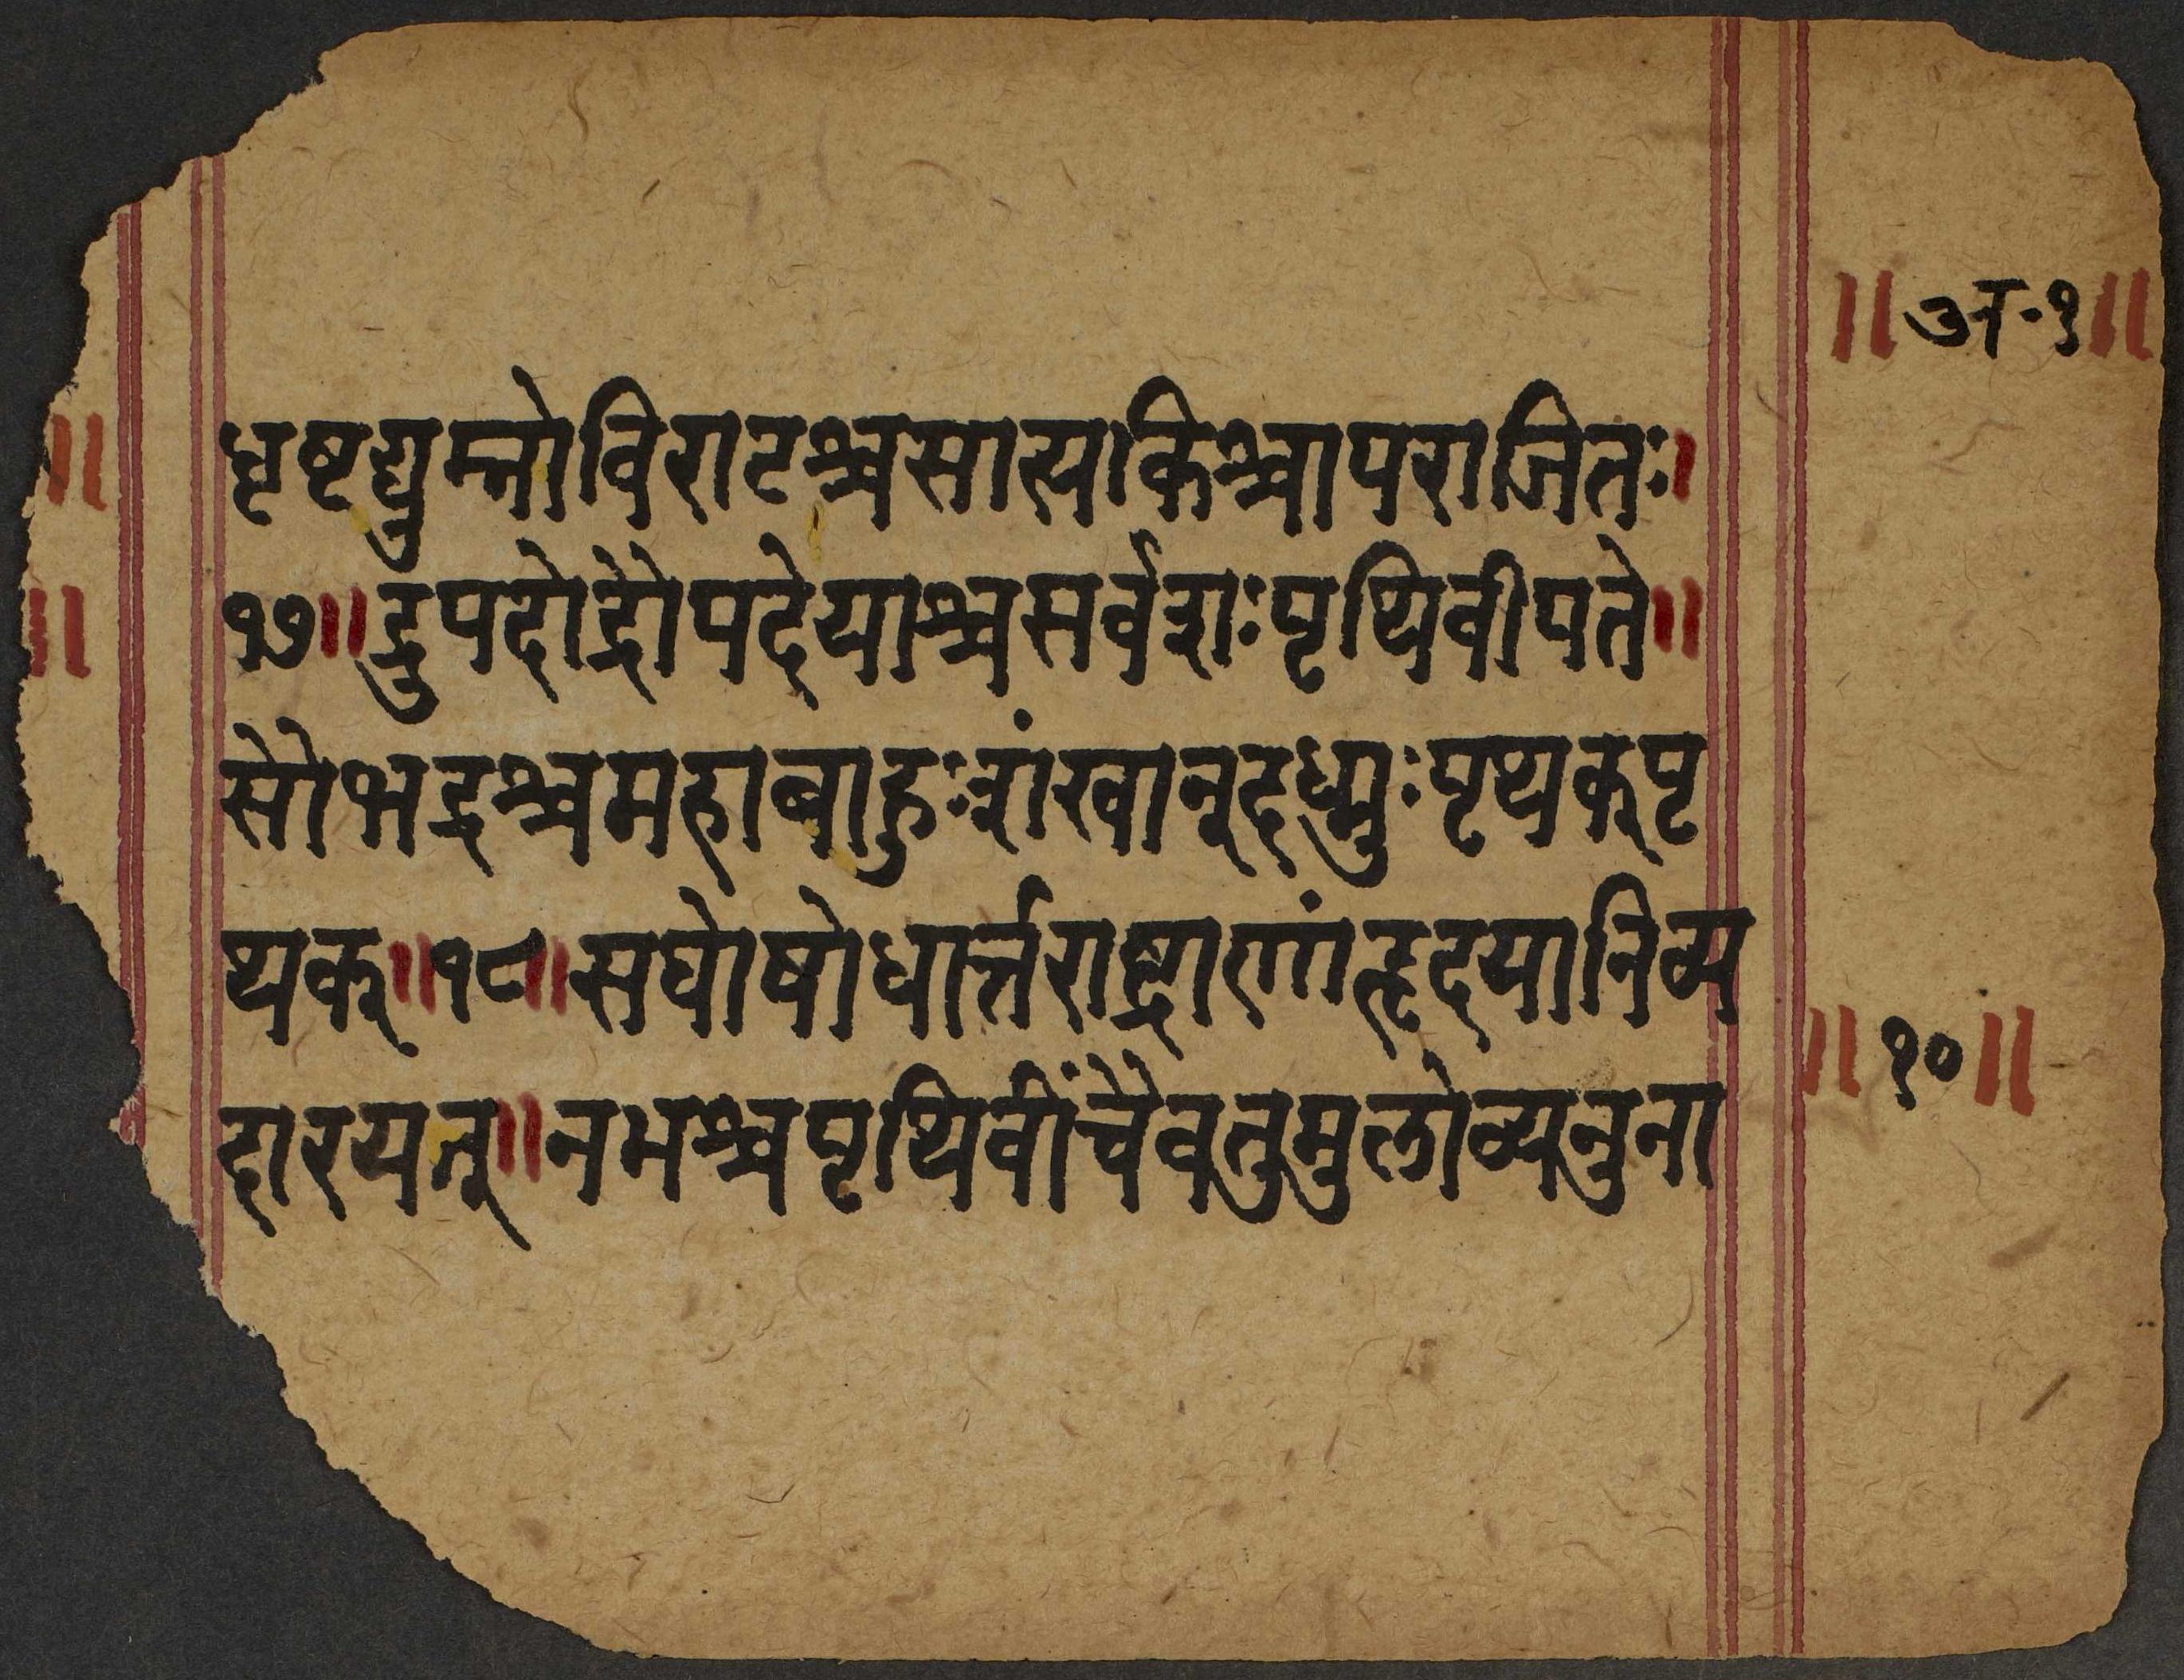 ॥ अ॰१॥
॥ धृष्टद्युम्नोविराटश्चसात्यकिश्चापराजितः।
॥ १७॥द्रुपदोद्रौपदेयाश्चसर्वशःपृथिवीपते॥
सौभद्रश्चमहाबाहुःशंखान्दध्मुःपृथक्पृ
थक्॥१८॥सघोषोधार्त्तराष्ट्राणांहृदयानिव्य
॥१०॥
दारयत्॥नभश्चपृथिवींचैवतुमुलोव्यनुना